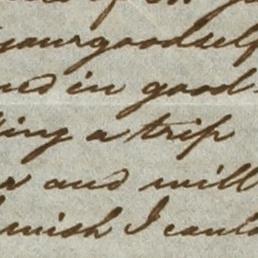 yourgoodself
ed in good
ing a trip
and will
wish I could